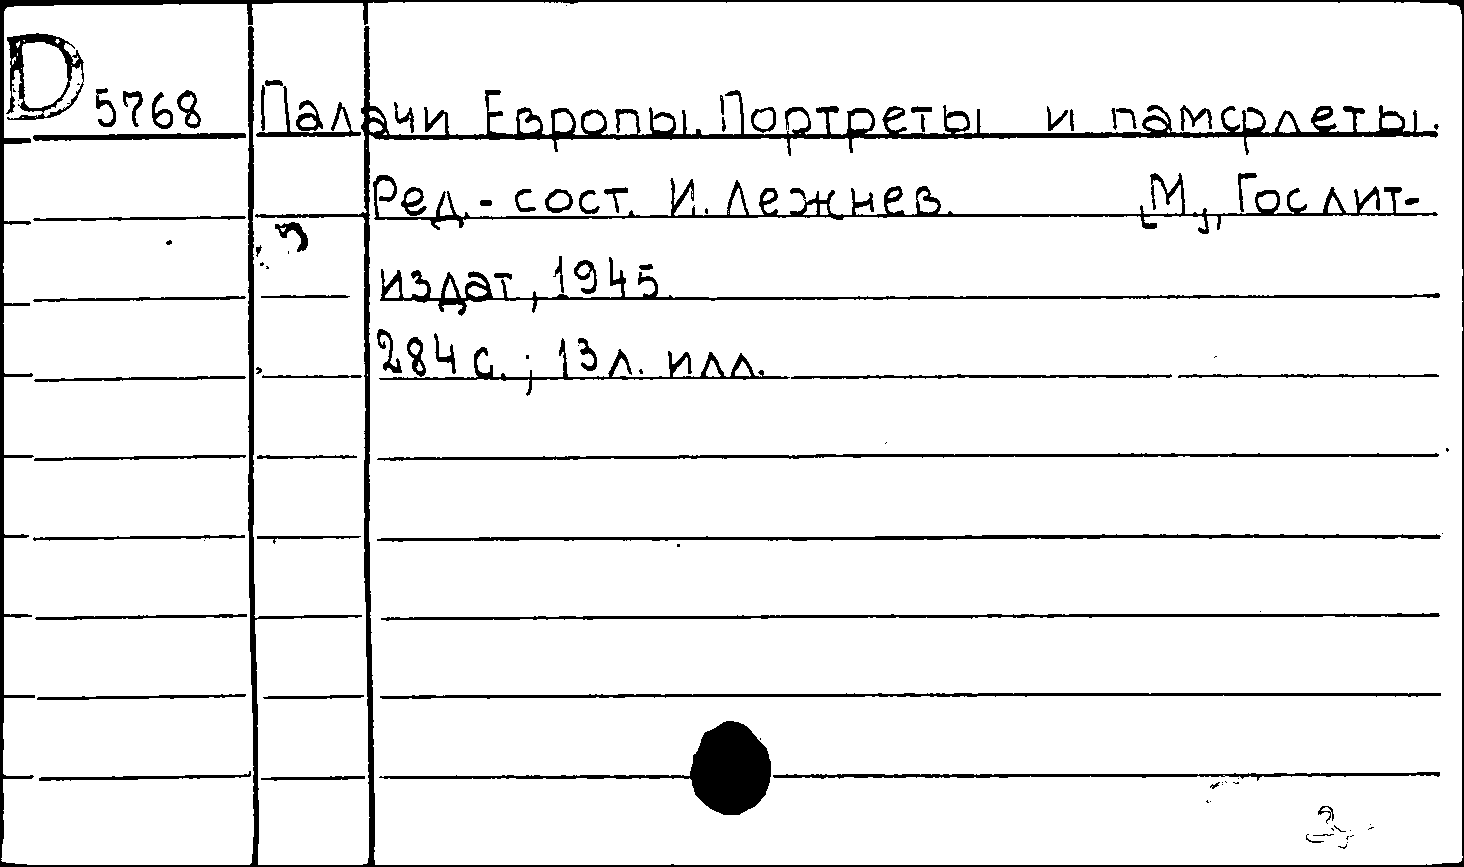 D 5768 Палачи Европы. Портреты и памфлеты.
Ред.-сост. И. Лежнев. [М.], Гослит-
издат, 1945
284 с.; 13 л. илл.